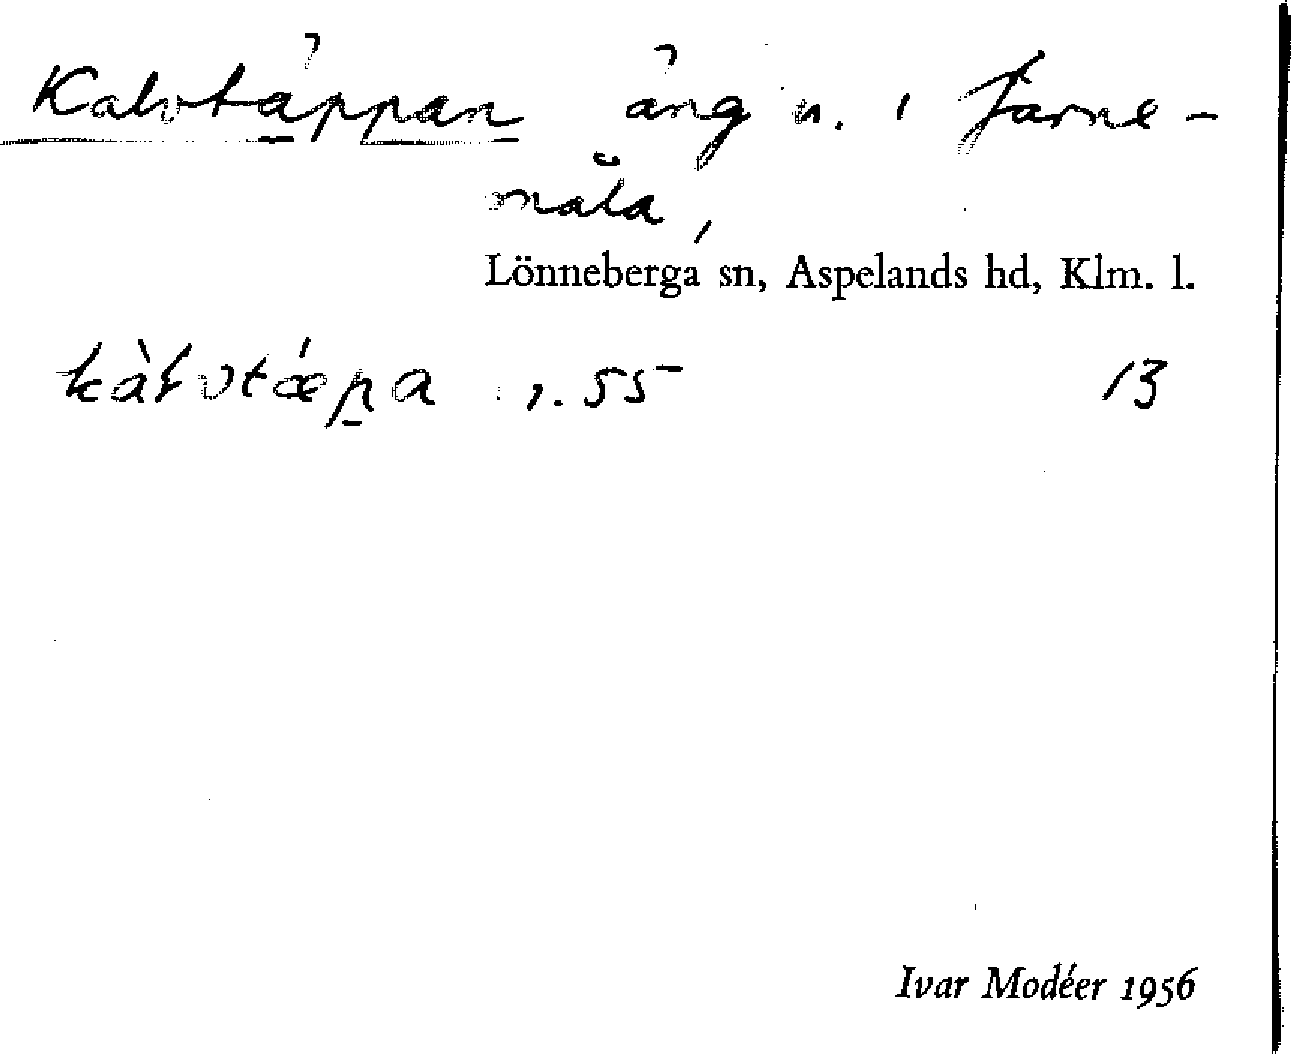 Kalvtäppan äng n. i Järne-
måla,
Lönneberga sn, Aspelands hd, Klm. l.
kàłvtǽpa 1.55 13
Ivar Modéer 1956